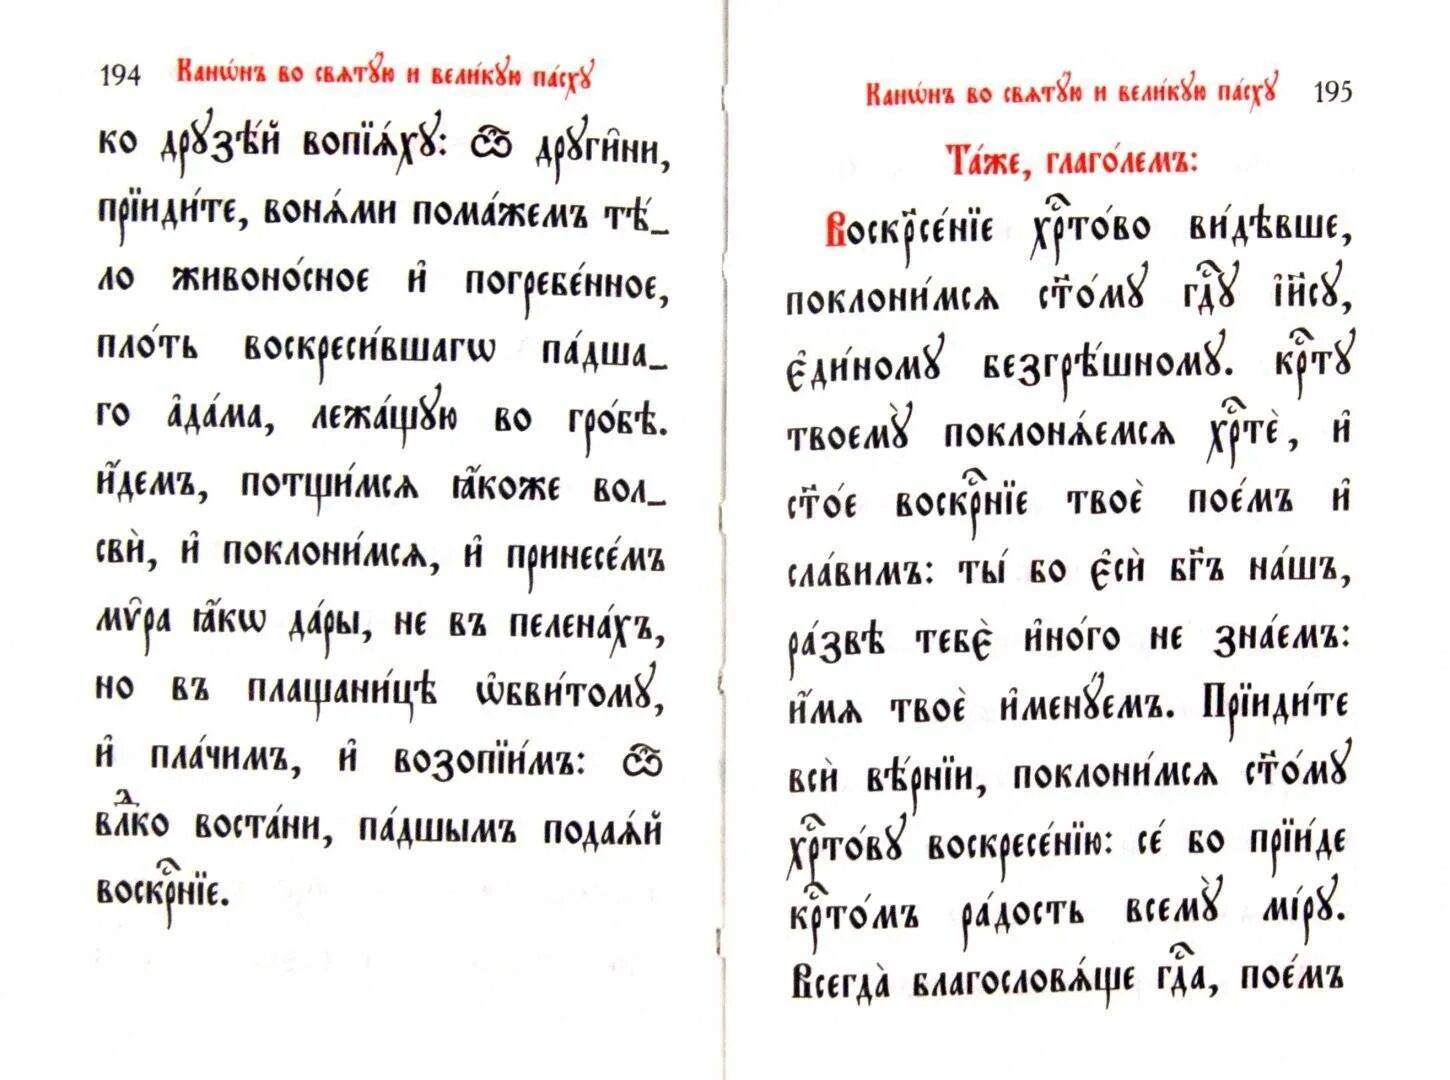 194 Канѡ́нъ во свѧтꙋ́ю и вели́кꙋю па́схꙋ
ко дрꙋзѣ́й вопїѧ́хꙋ: ѽ дрꙋги̑ни,
прїиди́те, вонѧ́ми пома́жемъ тѣ́_
ло живоно́сное и҆ погребе́нное,
пло́ть воскреси́вшагѡ па́дша_
го а҆да́ма, лежа́щꙋю во гро́бѣ.
и҆́демъ, потщи́мсѧ ꙗ҆́коже вол_
сви̑, и҆ поклони́мсѧ, и҆ принесе́мъ
мѵ̑ра ꙗ҆́кѡ да́ры, не въ пелена́хъ,
но въ плащани́цѣ ѡ҆бви́томꙋ,
и҆ пла́чимъ, и҆ возопїи́мъ: ѽ
влⷣко воста́ни, па́дшымъ подаѧ́й
воскрⷭ҇нїе.
Канѡ́нъ во свѧтꙋ́ю и вели́кꙋю па́схꙋ 195
Та́же, глаго́лемъ:
Воскрⷭ҇се́нїе хрⷭ҇то́во ви́дѣвше,
поклони́мсѧ ст҃о́мꙋ гдⷭ҇ꙋ і҆и҃сꙋ,
є҆ди́номꙋ безгрѣ́шномꙋ. крⷭ҇тꙋ
твоемꙋ̀ поклонѧ́емсѧ хрⷭ҇тѐ, и҆
ст҃о́е воскрⷭ҇нїе твоѐ пое́мъ и҆
сла́вимъ: ты́ бо є҆сѝ бг҃ъ на́шъ,
ра́звѣ тебє̀ и҆но́го не зна́емъ:
и҆́мѧ твоѐ и҆менꙋ́емъ. Прїиди́те
всѝ вѣ́рнїи, поклони́мсѧ ст҃о́мꙋ
хрⷭ҇то́вꙋ воскресе́нїю: се́ бо прїи́де
крⷭ҇то́мъ ра́дость всемꙋ̀ мі́рꙋ.
Всегда̀ благословѧ́ще гдⷭ҇а, пое́мъ